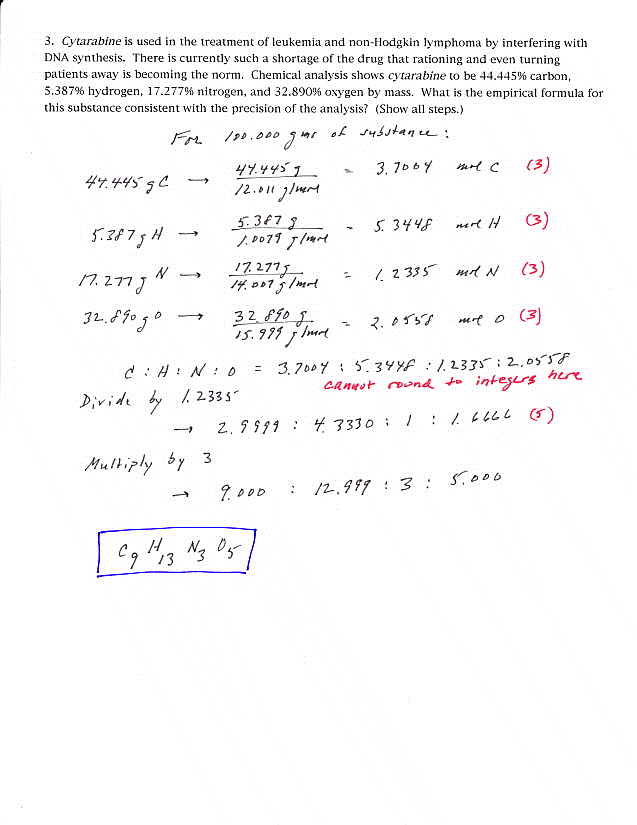 3. Cytarabine is used in the treatment of leukemia and non-Hodgkin lymphoma by interfering with
DNA synthesis. There is currently such a shortage of the drug that rationing and even turning
patients away is becoming the norm. Chemical analysis shows cytarabine to be 44.445% carbon,
5.387% hydrogen, 17.277% nitrogen, and 32.890% oxygen by mass. What is the empirical formula for
this substance consistent with the precision of the analysis? (Show all steps.)
For 100.000 gms of substance :
44.445 g C → 44.445 g / 12.011 g/mol = 3.7004 mol C (3)
5.387 g H → 5.387 g / 1.0079 g/mol = 5.3448 mol H (3)
17.277 g N → 17.277 g / 14.007 g/mol = 1.2335 mol N (3)
32.890 g O → 32.890 g / 15.999 g/mol = 2.0558 mol O (3)
C : H : N : O = 3.7004 : 5.3448 : 1.2335 : 2.0558
cannot round to integers here
Divide by 1.2335
→ 2.9999 : 4.3330 : 1 : 1.6666 (5)
Multiply by 3
→ 9.000 : 12.999 : 3 : 5.000
C9 H13 N3 O5